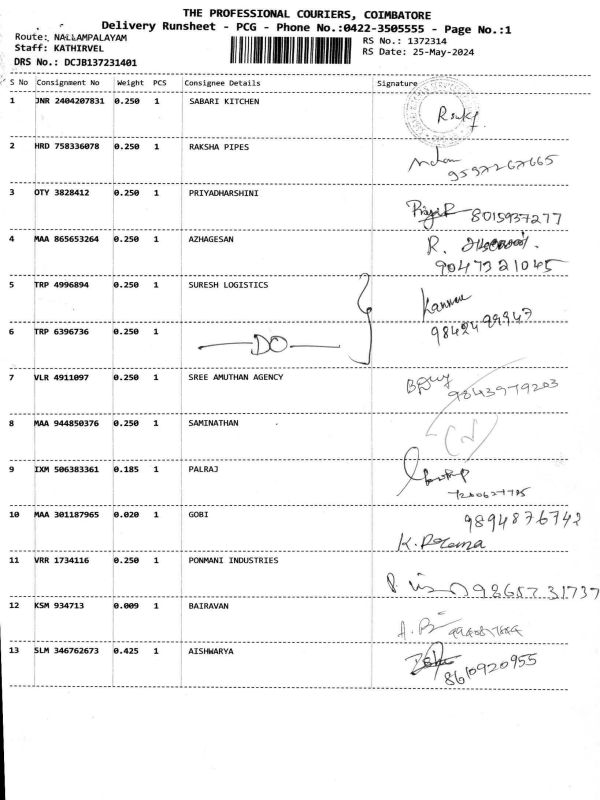 THE PROFESSIONAL COURIERS, COIMBATORE
Delivery Runsheet - PCG - Phone No.:0422-3505555 - Page No.:1
Route: NALLAMPALAYAM
RS No.: 1372314
Staff: KATHIRVEL
RS Date: 25-May-2024
DRS No.: DCJB137231401
S No Consignment No Weight PCS Consignee Details Signature
1 JNR 2404207831 0.250 1 SABARI KITCHEN
2 HRD 758336078 0.250 1 RAKSHA PIPES
9597267665
3 OTY 3828412 0.250 1 PRIYADHARSHINI
8015937277
4 MAA 865653264 0.250 1 AZHAGESAN R.
9047321045
5 TRP 4996894 0.250 1 SURESH LOGISTICS
6 TRP 6396736 0.250 1 DO
7 VLR 4911097 0.250 1 SREE AMUTHAN AGENCY
9843979203
8 MAA 944850376 0.250 1 SAMINATHAN
9 IXM 506383361 0.185 1 PALRAJ
10 MAA 301187965 0.020 1 GOBI 9894876742
K.
11 VRR 1734116 0.250 1 PONMANI INDUSTRIES
9865731737
12 KSM 934713 0.009 1 BAIRAVAN
13 SLM 346762673 0.425 1 AISHWARYA
8610920955